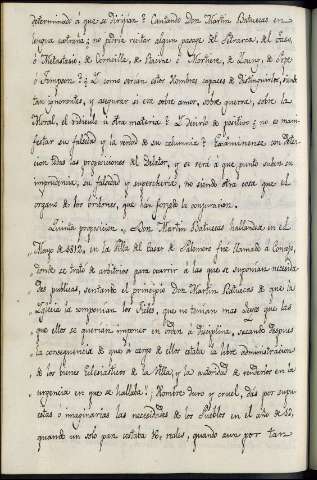 determinado á que se dirigian? Cantando Don Martin Batuecas en
lengua extraña; no podria recitar algun pasage del Petrarca, del Taso,
ó Metastasio, de Corneille, de Racine, ó Moliere, de Young, de Pope
ó Tompson? Y como serian estos Hombres capaces de distinguirlos, siendo
tan ignorantes, y asegurar si era sobre amor, sobre guerra, sobre la
Moral, el ridiculo ú otra materia? Y decirlo de positivo; no es mani-
festar su falsedad y la verdad de su calumnia? Examinense con deten-
cion todas las proposiciones del Delator, y se verá á que punto suben su
imprudencia, su falsedad y superchería, no siendo otra cosa que el
organo de los bribones, que han forjado la conjuracion.
Quinta proposicion. Don Martin Batuecas hallandose en el
Mayo de 1812, en la Villa del Casar de Palomero fue llamado á Concejo,
donde se trató de arbitrios para ocurrir á las que se suponian necesida-
des publicas, sentando el principio Don Martin Batuecas de que la
Iglesia la componian los Fieles, que no tenian mas Leyes que las
que ellos se querian imponer en orden á disciplina, sacando despues
la consequencia de que á cargo de ellos estaba la libre administracion
de los bienes Eclesiasticos de la Villa, y la autoridad de venderlos en la
urgencia en que se hallaba? ¡Hombre duro y cruel, das por supu-
estas ó imaginarias las necesidades de los Pueblos en el año de 12,
quando un solo pan costaba 10, reales, quando aun por tan